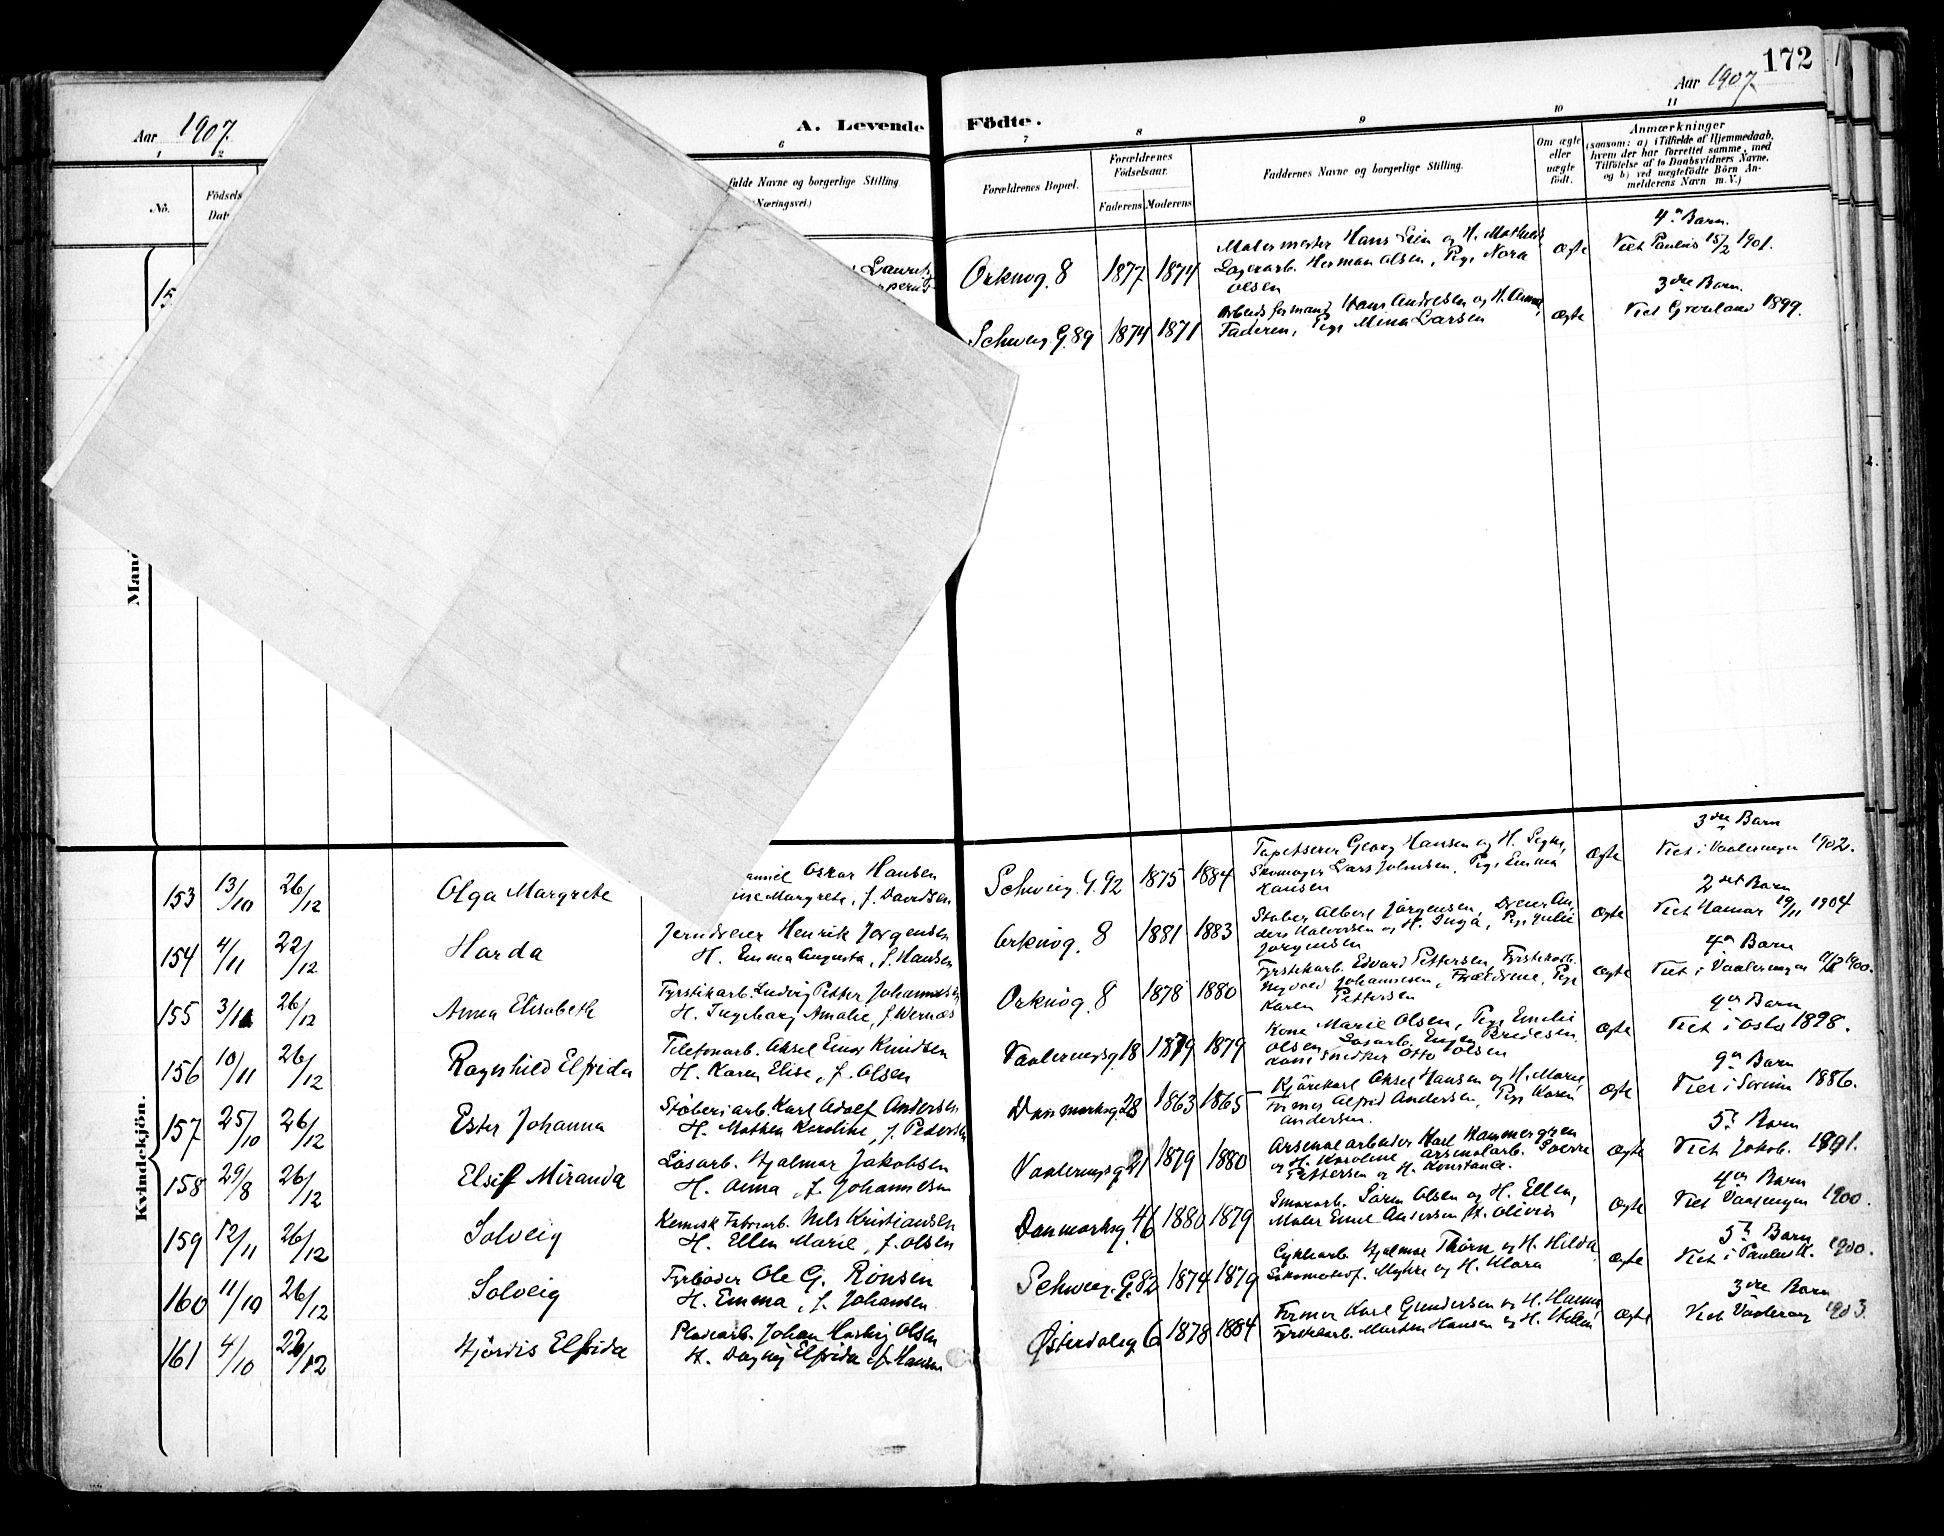 172
Aar 1907.
Aar 1907.
A. Levende Födte.
1
2
6
7
8
9
10
11
No.
Födsels
Dat
fulde Navne og borgerlige Stilling
(Næringsvei.)
Forældrenes Bopæl.
Forældrenes
Födselsaar.
Faderens
Moderens
Faddernes Navne og borgerlige Stilling.
Om ægte
eller
uægte
födt.
Anmærkninger
(saasom: a) i Tilfælde af Hjemmedaab,
hvem der har forrettet samme, med
Tilföielse af to Daabsvidners Navne,
og b) ved uægtefödte Börn An-
melderens Navn m. V.)
15
Lauritz
Orknög. 8
1877
1874
Malermester Hans Lien og H. Mathea
Lagerarb. Herman Olsen, Pige Nora
Olsen
Ægte
4. Barn.
Viet Paulus 15/2 1901.
Schweig. G. 89
1874
1871
Arbeidsformand Hans Andresen og H. Anna,
Faderen, Pige Mina Larsen
Ægte
3die Barn.
Viet Grönland 1899.
Mand
Kvindekjön.
153 13/10 26/12 Olga Margrete
Oskar Hansen
Margrete, f. Davidsen
Schweig. G. 92 1875 1884
Tapetserer Georg Hansen og H. Signe,
Skomager Lars Johnsen, Pige Emma
Hansen
Ægte
3die Barn
Viet i Vaalerengen 1902.
154 4/11 22/12 Harda
Jerndreier Henrik Jörgensen
H. Emma Augusta, f. Hansen
Orknög. 8 1881 1883
Stöber Albert Jörgensen, Dreier An-
ders Halvorsen og H. Inga, Pige Julie
Jörgensen
Ægte
2det Barn
Viet Hamar 19/11 1904
155 3/11 26/12 Anna Elisabeth
Fyrstikarb. Ludvig Petter Johannesen
H. Ingeborg Amalie, f. Wernes
Orknög. 8 1878 1880
Fyrstikarb. Edvard Pettersen, Fyrstikarb.
Johannesen, Forældrene, Pige
Karen Pettersen
Ægte
4. Barn
Viet i Vaalerengen 1900.
156 10/11 26/12 Ragnhild Elfrida
Telefonarb. Aksel Einar Knudsen
H. Karen Elise, f. Olsen
Vaalerengsg. 18 1879 1879
Kone Marie Olsen, Pige Emelie
Olsen, Lösarb. Eugen Bredesen
Snedker Otto Olsen
Ægte
4. Barn
Viet i Oslo 1898.
157 25/10 26/12 Ester Johanna
Stöberiarb. Karl Adolf Andersen
H. Mathea Karoline, f. Pedersen
Danmarksg. 28 1863 1865
Kjörekarl Aksel Hansen og H. Marie,
Former Alfred Andersen, Pige Karen
Andersen.
Ægte
9. Barn
Viet i 1886.
158 29/8 26/12 Elsif Miranda
Lösarb. Hjalmar Jakobsen
H. Anna, f. Johannesen
Vaalerengsg. 21 1879 1880
Arsenalarbeider Karl Hammergren
og H. Karoline, Arsenalarb. Sverre
Pettersen og H. Konstance.
Ægte
5. Barn
Viet Jakob. 1891.
159 12/11 26/12 Solveig
Kemisk Fabrarb. Nils Kristiansen
H. Ellen Marie, f. Olsen
Danmarksg. 46 1880 1879
Smörarb. Sören Olsen og H. Ellen,
Maler Emil Andersen, H. Olivia
Ægte
4. Barn
Viet Vaalerengen 1900.
160 11/10 26/12 Solveig
Fyrböder Ole G. Rönsen
H. Emma, f. Johansen
Schweig. G. 82 1874 1879
Cyklearb. Hjalmar Thörn og H. Hilda,
Lokomotivf. Myhre og H. Klara
Ægte
5. Barn
Viet i Paulus K. 1900.
161 4/10 22/12 Hjördis Elfrida
Pladearb. Johan Hartvig Olsen
H. Dagny Elfrida f. Hansen
Österdalsg. 6 1878 1884
Former Karl Gundersen og H. Hanna,
Fyrstikarb. Morten Hansen og H. Helene
Ægte
3die Barn
Viet Vaalereng 1903.